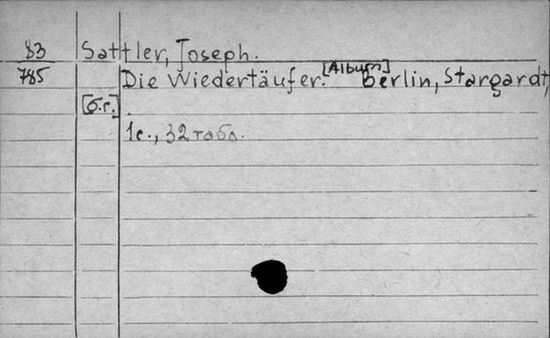 83 Sattler, Joseph.
785 Die Wiedertäufer. [Album] Berlin, Stargardt,
[б.г.].
1с., 32 табл.